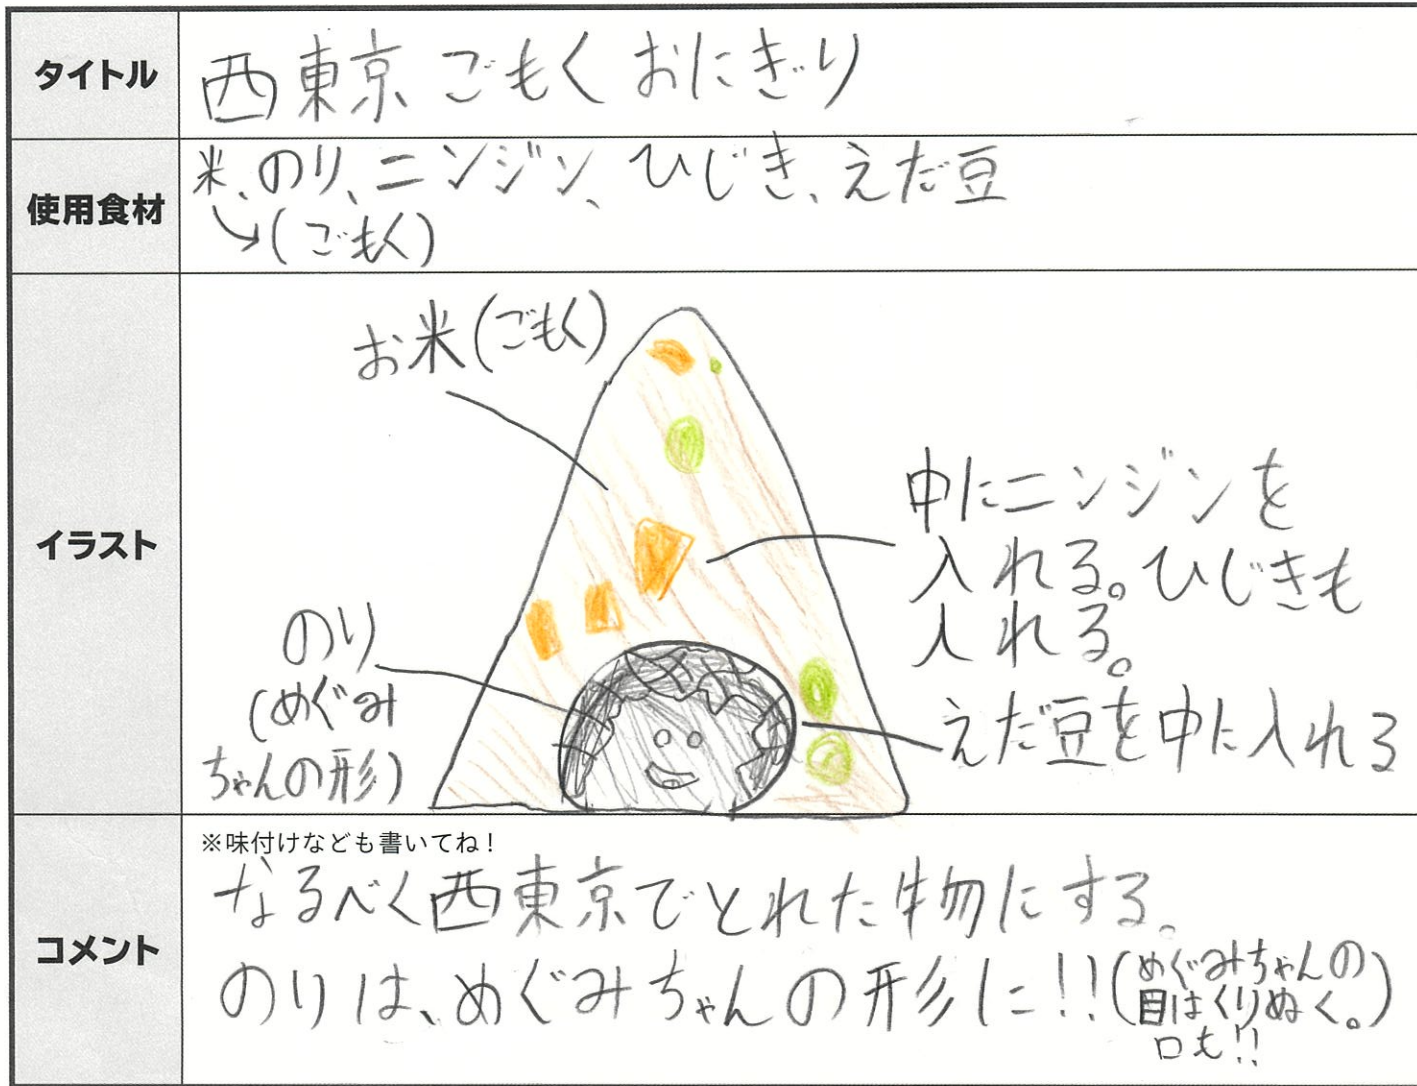 タイトル
西東京ごもくおにぎり
使用食材
米、のり、ニンジン、ひじき、えだ豆
↘(ごもく)
イラスト
お米(ごもく)
中にニンジンを
入れる。ひじきも
入れる。
のり
(めぐみ
ちゃんの形)
えだ豆を中に入れる
コメント
※味付けなども書いてね!
なるべく西東京でとれた物にする。
のりは、めぐみちゃんの形に!!(めぐみちゃんの
目はくりぬく。)
口も!!